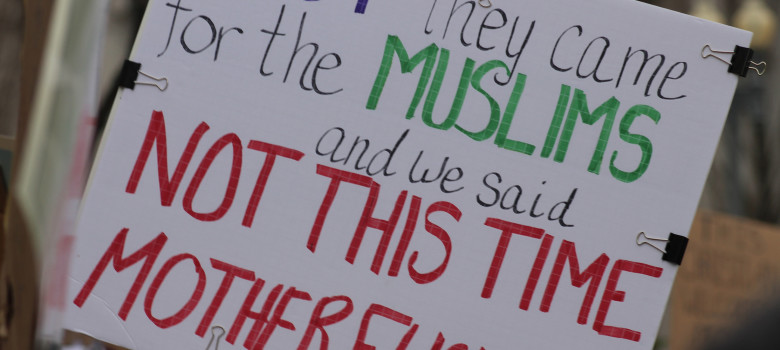 they came
for the MUSLIMS
and we said
NOT THIS TIME